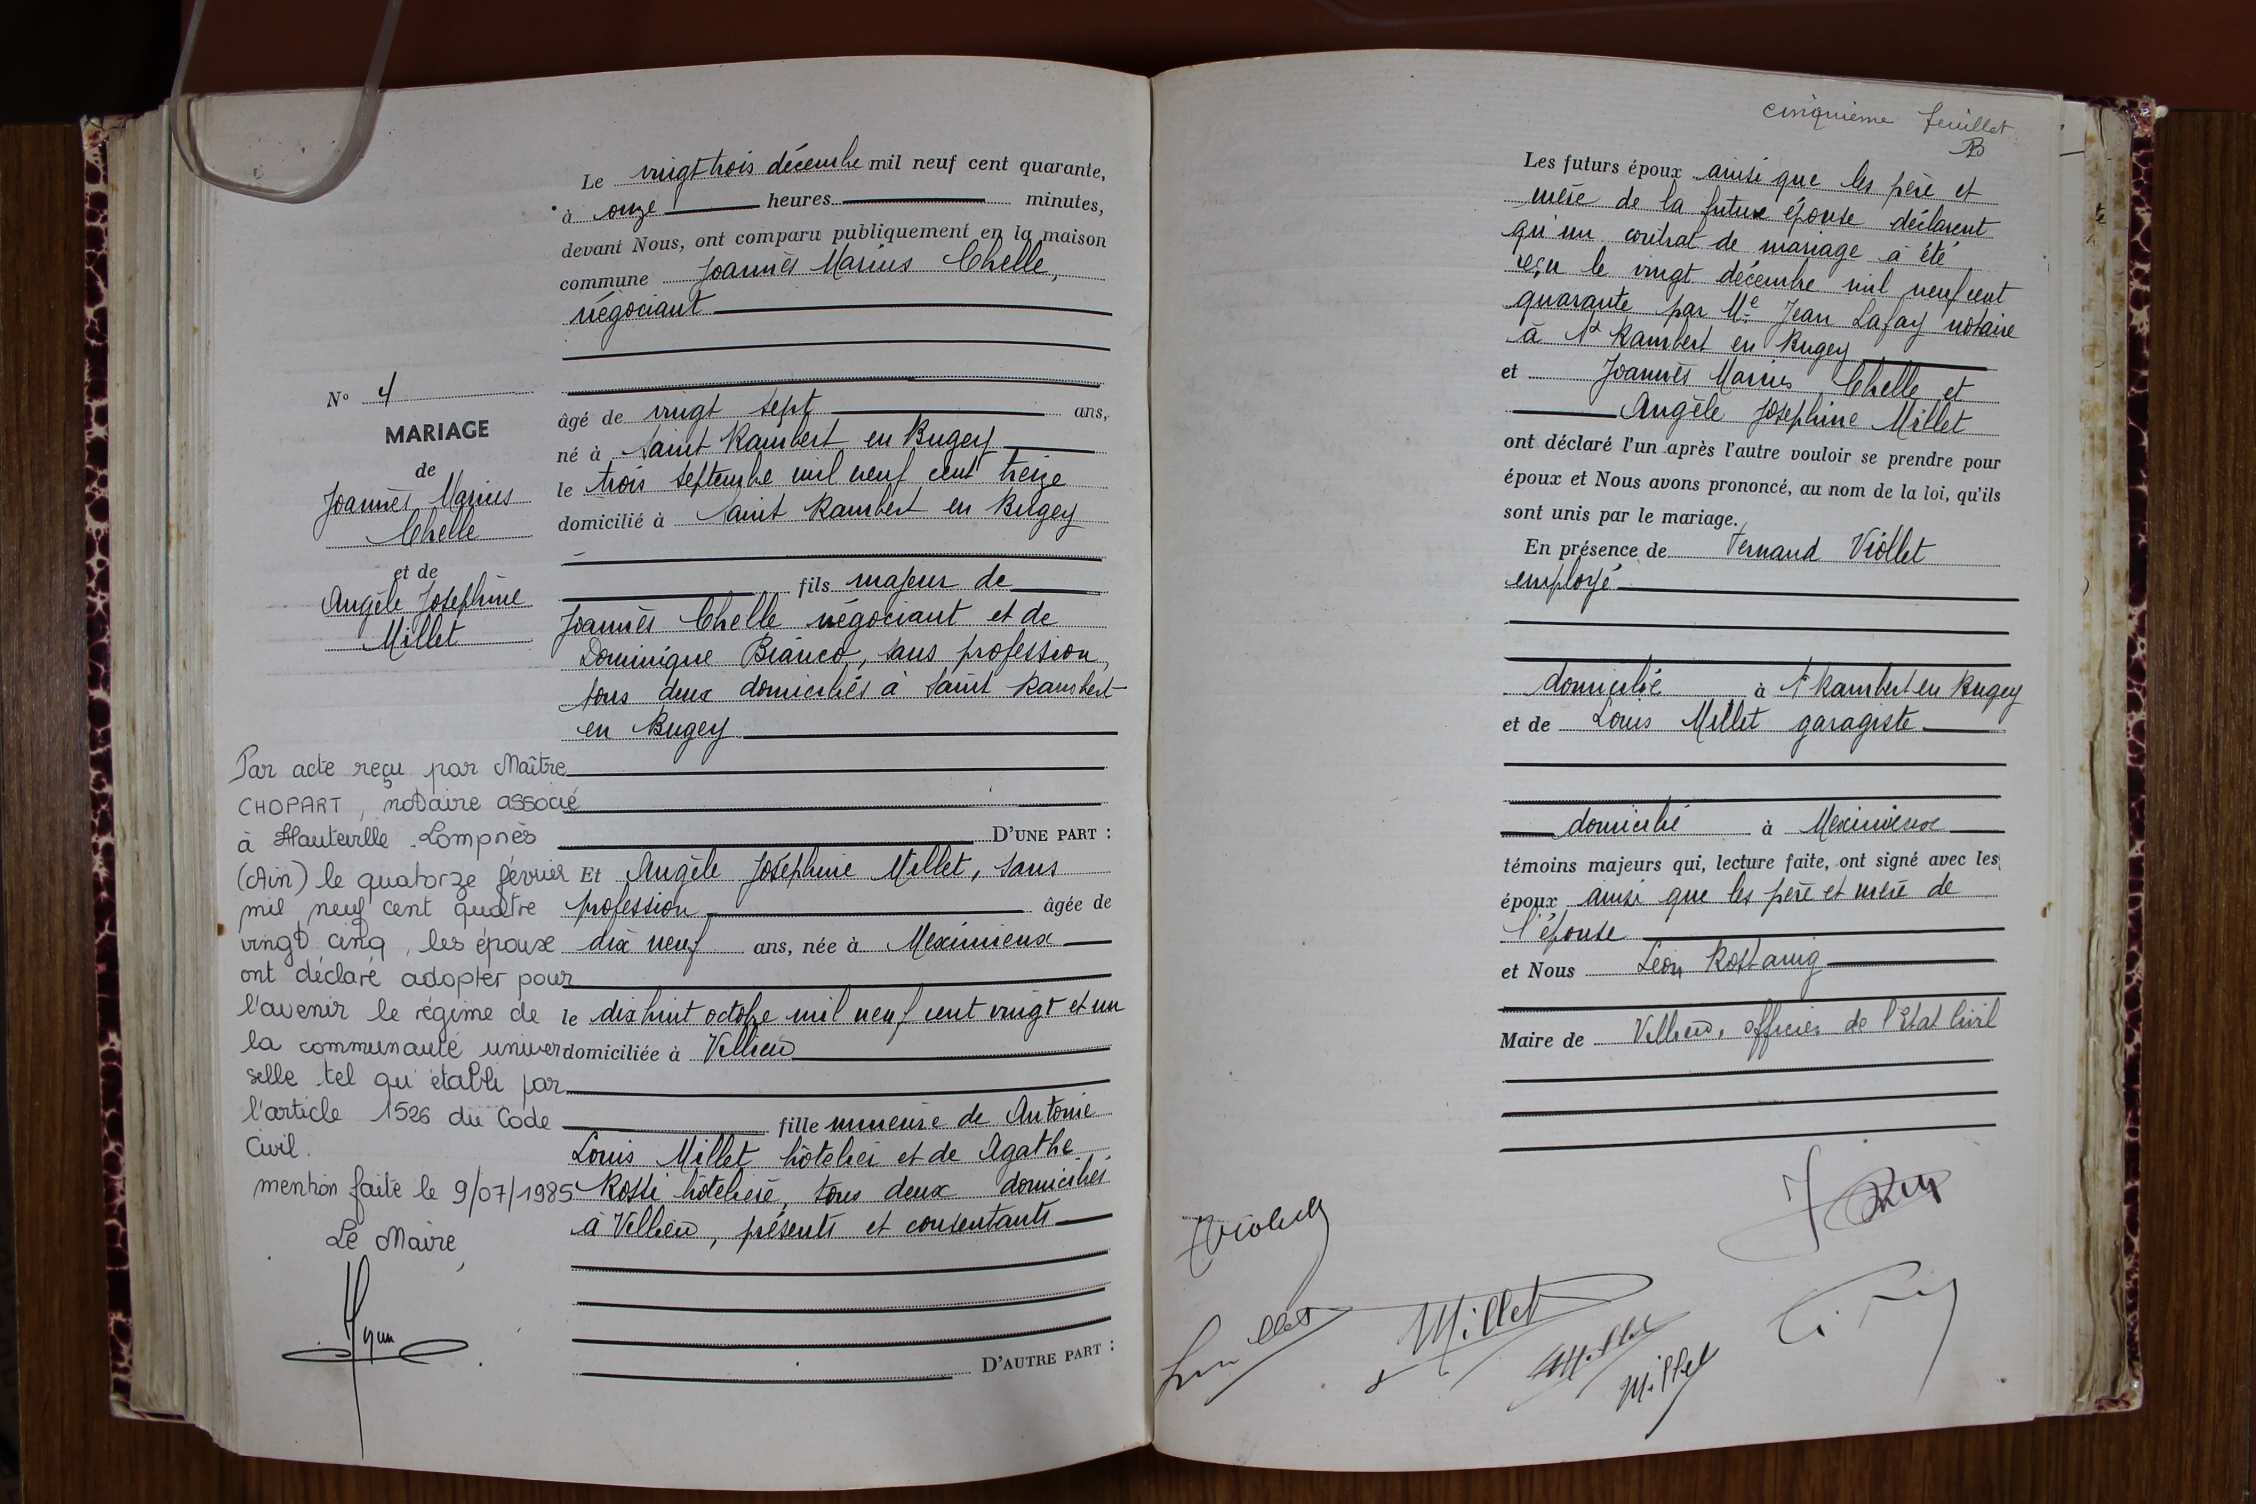 Le vingt trois décembre mil neuf cent quarante,
à onze heures minutes,
devant Nous, ont comparu publiquement en la maison
commune Joannès Marius Chelle,
négociant
âgé de vingt sept ans,
né à Saint Rambert en Bugey
le trois septembre mil neuf cent treize
domicilié à Saint Rambert en Bugey
fils majeur de
Joannès Chelle négociant et de
Dominique Bianco, sans profession,
tous deux domiciliés à Saint Rambert
en Bugey
D'UNE PART :
Et Angèle Joséphine Millet, sans
profession âgée de
dix neuf ans, née à Meximieux
le dix huit octobre mil neuf cent vingt et un
domiciliée à Villieu
fille mineure de Antoine
Louis Millet hôtelier et de Agathe
Rossi hôtelière, tous deux domiciliés
à Villieu, présents et consentants
D'AUTRE PART :
N° 4
MARIAGE
de
Joannès Marius
Chelle
et de
Angèle Joséphine
Millet
Par acte reçu par Maître
CHOPART, notaire associé
à Hauteville-Lompnès
(Ain) le quatorze février
mil neuf cent quatre
vingt cinq, les époux
ont déclaré adopter pour
l'avenir le régime de
la communauté univer
selle tel qu'établi par
l'article 1526 du Code
Civil.
mention faite le 9/07/1985
Le Maire,
cinquième feuillet
Les futurs époux ainsi que les père et
mère de la future épouse déclarent
qu'un contrat de mariage a été
reçu le vingt décembre mil neuf cent
quarante par Me Jean Lafay notaire
à St Rambert en Bugey
et Joannès Marius Chelle et
Angèle Joséphine Millet
ont déclaré l'un après l'autre vouloir se prendre pour
époux et Nous avons prononcé, au nom de la loi, qu'ils
sont unis par le mariage.
En présence de Fernand Viollet
employé
domicilié à St Rambert en Bugey
et de Louis Millet garagiste
domicilié à Meximieux
témoins majeurs qui, lecture faite, ont signé avec les
époux ainsi que les père et mère de
l'épouse
et Nous Léon Rostaing
Maire de Villieu, officier de l'Etat Civil
Millet
Millet